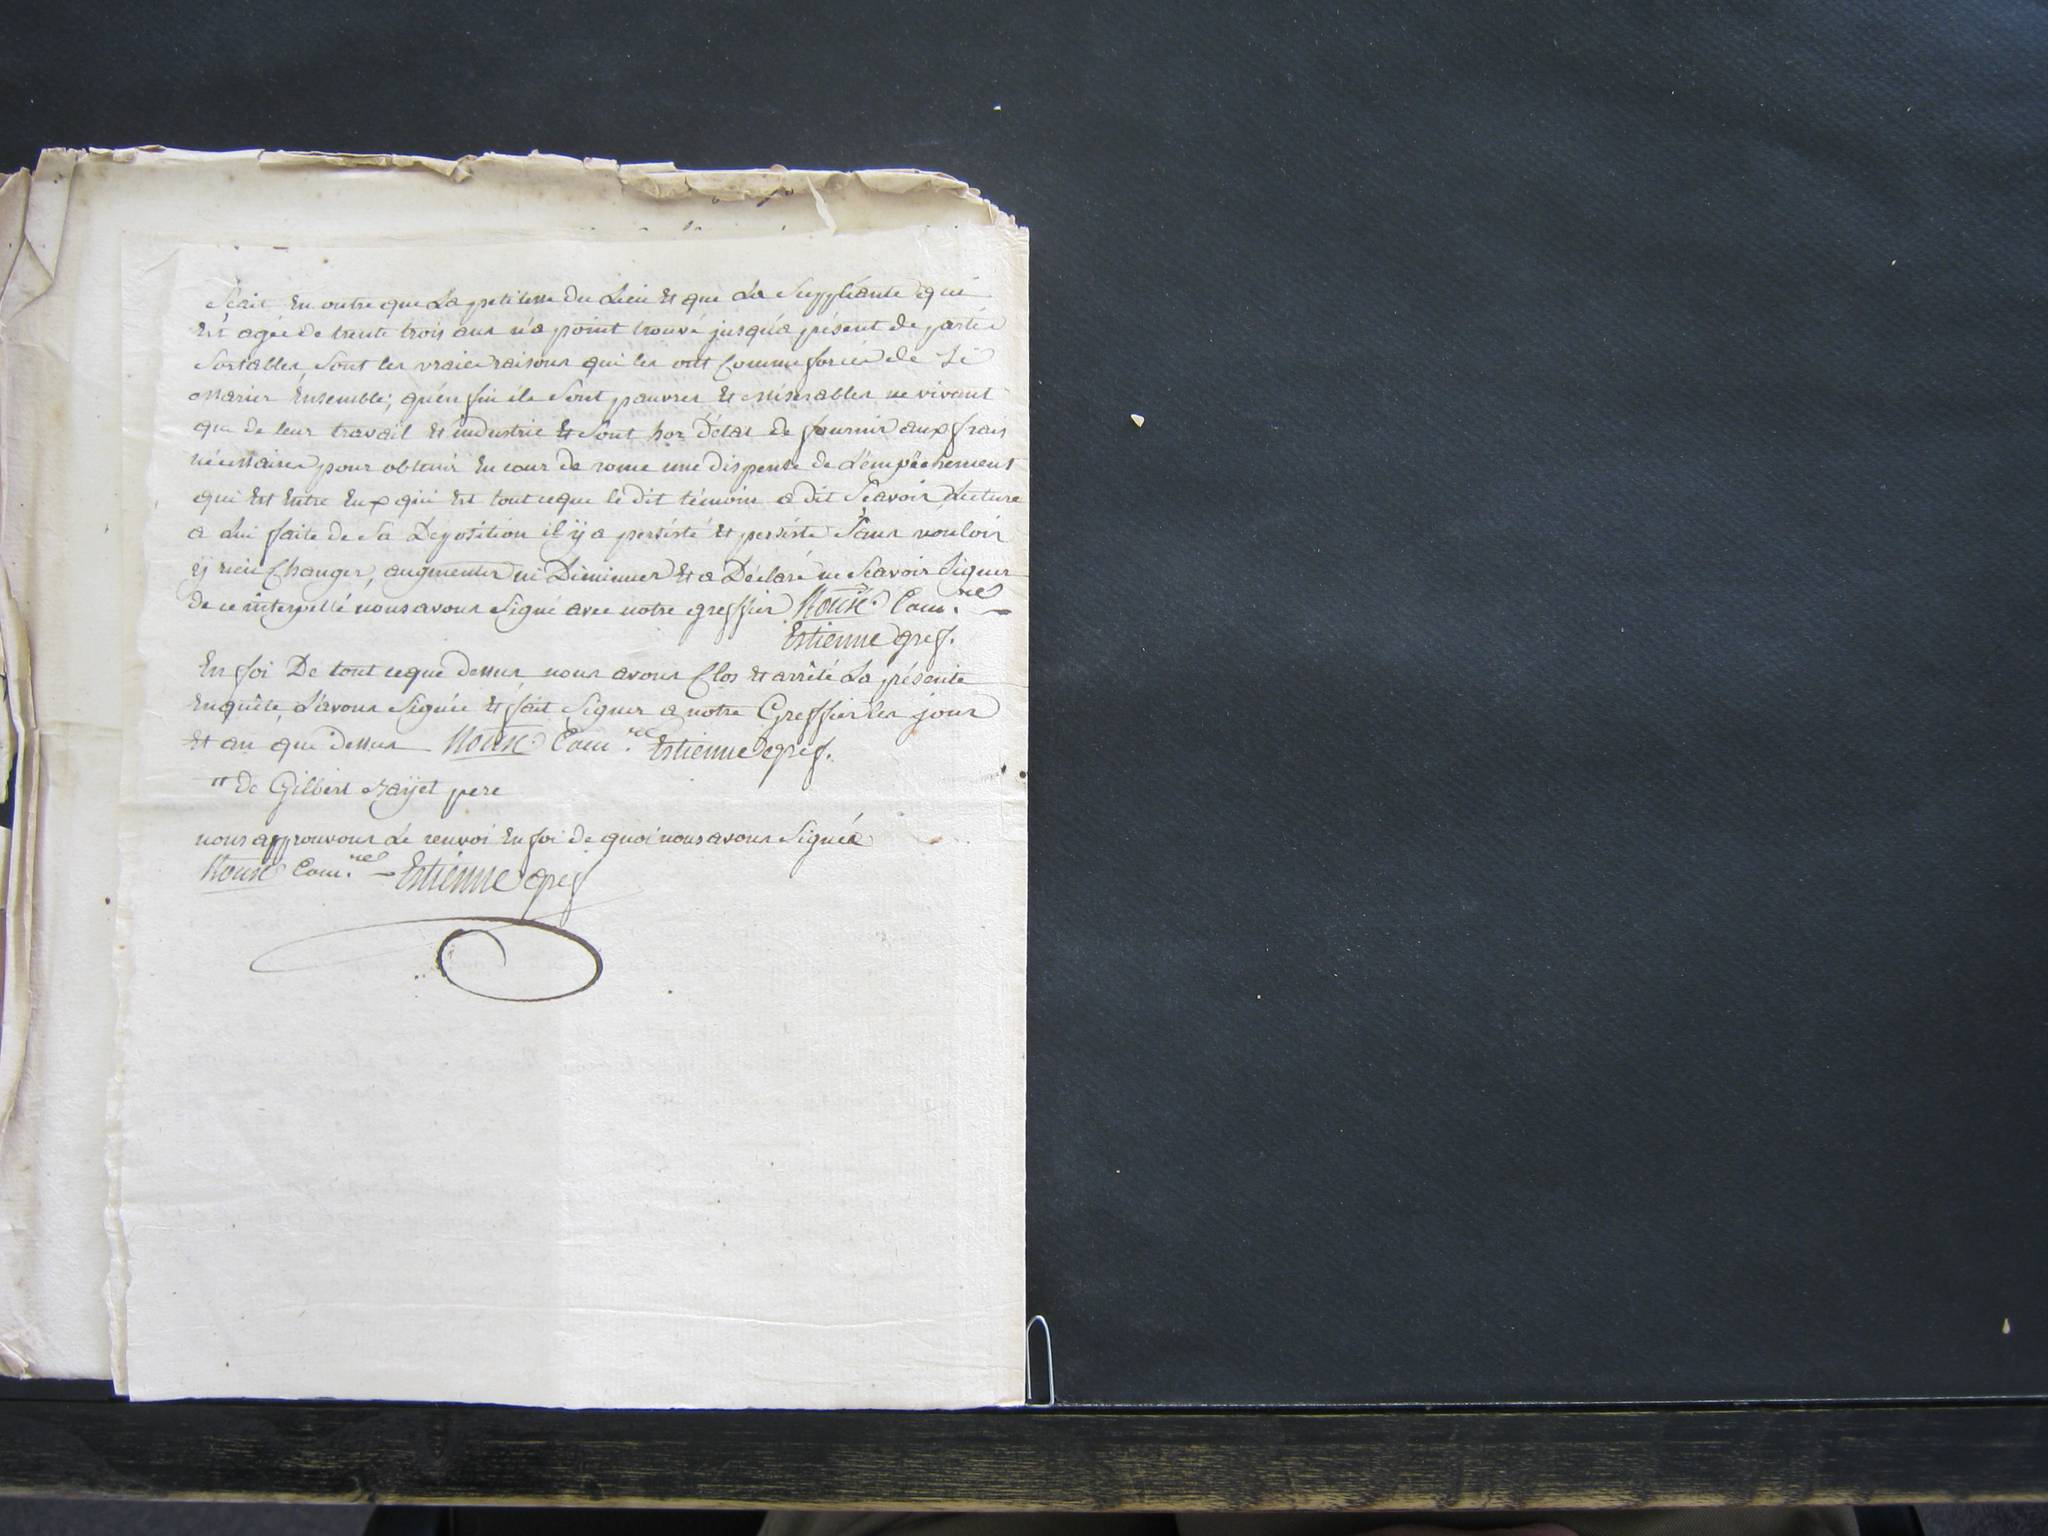 Sçait En outre que La petitesse du Lieu Et que La Suppliante qui
Est agée de trente trois ans n'a point trouvé jusqu'a présent de partis
Sortables, Sont les vraies raisons qui les ont Comme forcés de Se
Marier Ensemble; qu'en fin ils Sont pauvres Et misérables ne vivant
que de leur travail Et industrie Et Sont hor D'état de fournir aux frais
nécessaires pour obtenir En cour de rome une dispense de L'empêchement
qui Est Entre Eux qui Est tout ceque le dit témoin a dit Sçavoir, Lecture
a Lui faite de Sa Déposition il ÿ a persisté Et persiste Sans vouloir
ÿ rien Changer, augmenter ni Diminuer Et a Déclaré ne Scavoir Signer
de ce interpellé nous avons Signé avec notre greffier Roux Com.re
Estienne gref.
En foi De tout ceque dessus nous avons Clos Et arrêté La présente
Enquête, L'avons Signée Et fait Signer a notre Greffier les jour
Et an que dessus Roux Com.re Estienne gref.
" de Gilbert père
nous approuvons Le renvoi En foi de quoi nous avons Signés
Roux Com.re Estienne gref